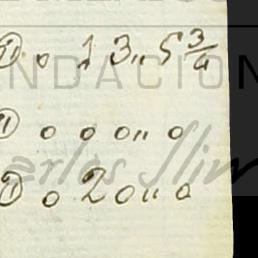 ① 0 1 3,, 5 3/4
NDACIO
① 0 0 0,, 0
arlos Slim
① 0 2 0,, 0